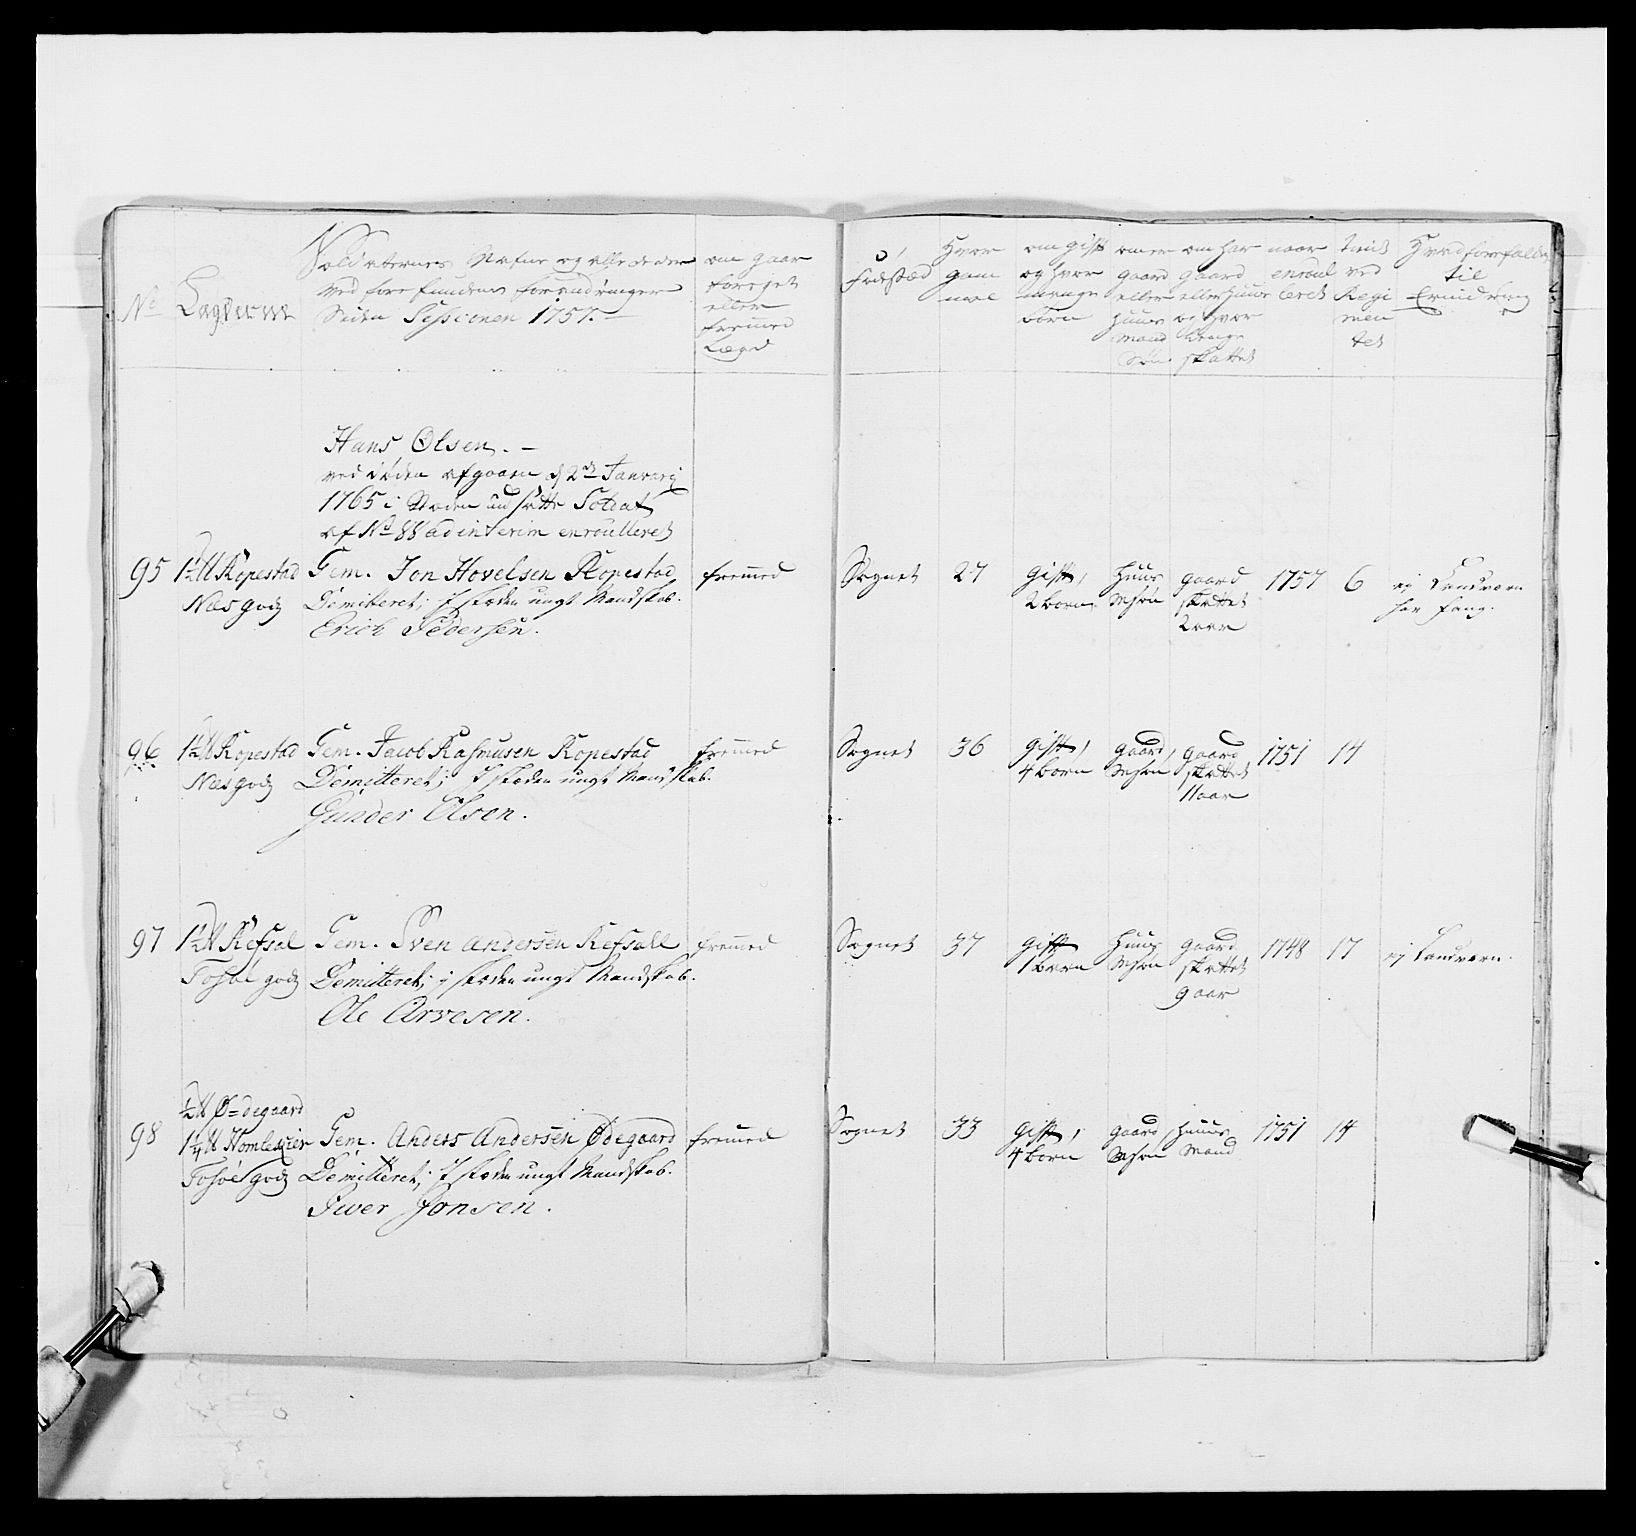 No
Lægderne
Soldaternes Nafne og alle de der
ved forefundene forandringer
Siden Sessionen 1757. –
om gaar
for eget
eller
fremed
Lægd
Fødested
Hvor
gam
mel
om gift
og hvor
mange
børn
om er
gaard
eller
huus
mand
Søn
om har
gaard
eller huus
og hvor
længe
skattet
naar
enroul
leret
tient
ved
Regi
men
tet
Hvad forefalder
til
Erindring
Hans Olsen. –
ved døden afgaaen d 2de Januarij
1765 i Steden udsatte Soldat
af No 88 ad interim enroulleret
95
1½ Kopestad
Næs godz
Gem. Jon Hovelsen Kopestad
Demitteret; I steden ungt Mandskab.
Erich Pedersen.
fremed
Sognet
27
gift,
2 børn
huus
M: søn
gaard
skattet
2 aar
1757
6
ej Landværn
har
96
1½ Kopestad
Næs godz
Gem. Jacob Rasmusen Kopestad
Demitteret; I steden ungt Mandskab.
Gunder Olsen.
fremed
Sognet
36
gift,
4 børn
gaard
M: søn
gaard
skattet
11 aar
1751
14
97
1½ Refsal
Fosøe godz
Gem. Sven Andersen Refsall
Demitteret; i steden ungt Mandskab.
Ole Arvesen.
fremed
Sognet
37
gift
1 barn
huus
M: søn
gaard
skattet
9 aar
1748
17
ej Landværn.
98
½ Ødegaard
1¼
Fosøe godz
Gem. Anders Andersen Ødegaard
Demitteret; I steden ungt Mandskab.
Iver Jonsen.
fremed
Sognet
33
gift,
4 børn
gaard
M: søn
huus
Mand
1751
14